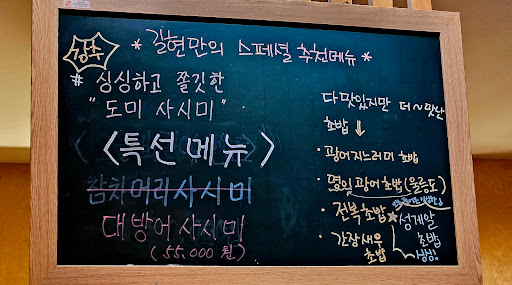 강추
* 길현만의 스페셜 추천메뉴 *
# 싱싱하고 쫄깃한
"도미 사시미"
<특선메뉴>
참치머리사시미
대방어 사시미
(55,000 원)
다 맛있지만 더~맛난
초밥 ↓
· 광어지느러미 초밥
· 명인 광어 초밥 (울릉도)
· 전복 초밥
· 간장새우
초밥
★ 성게알
초밥